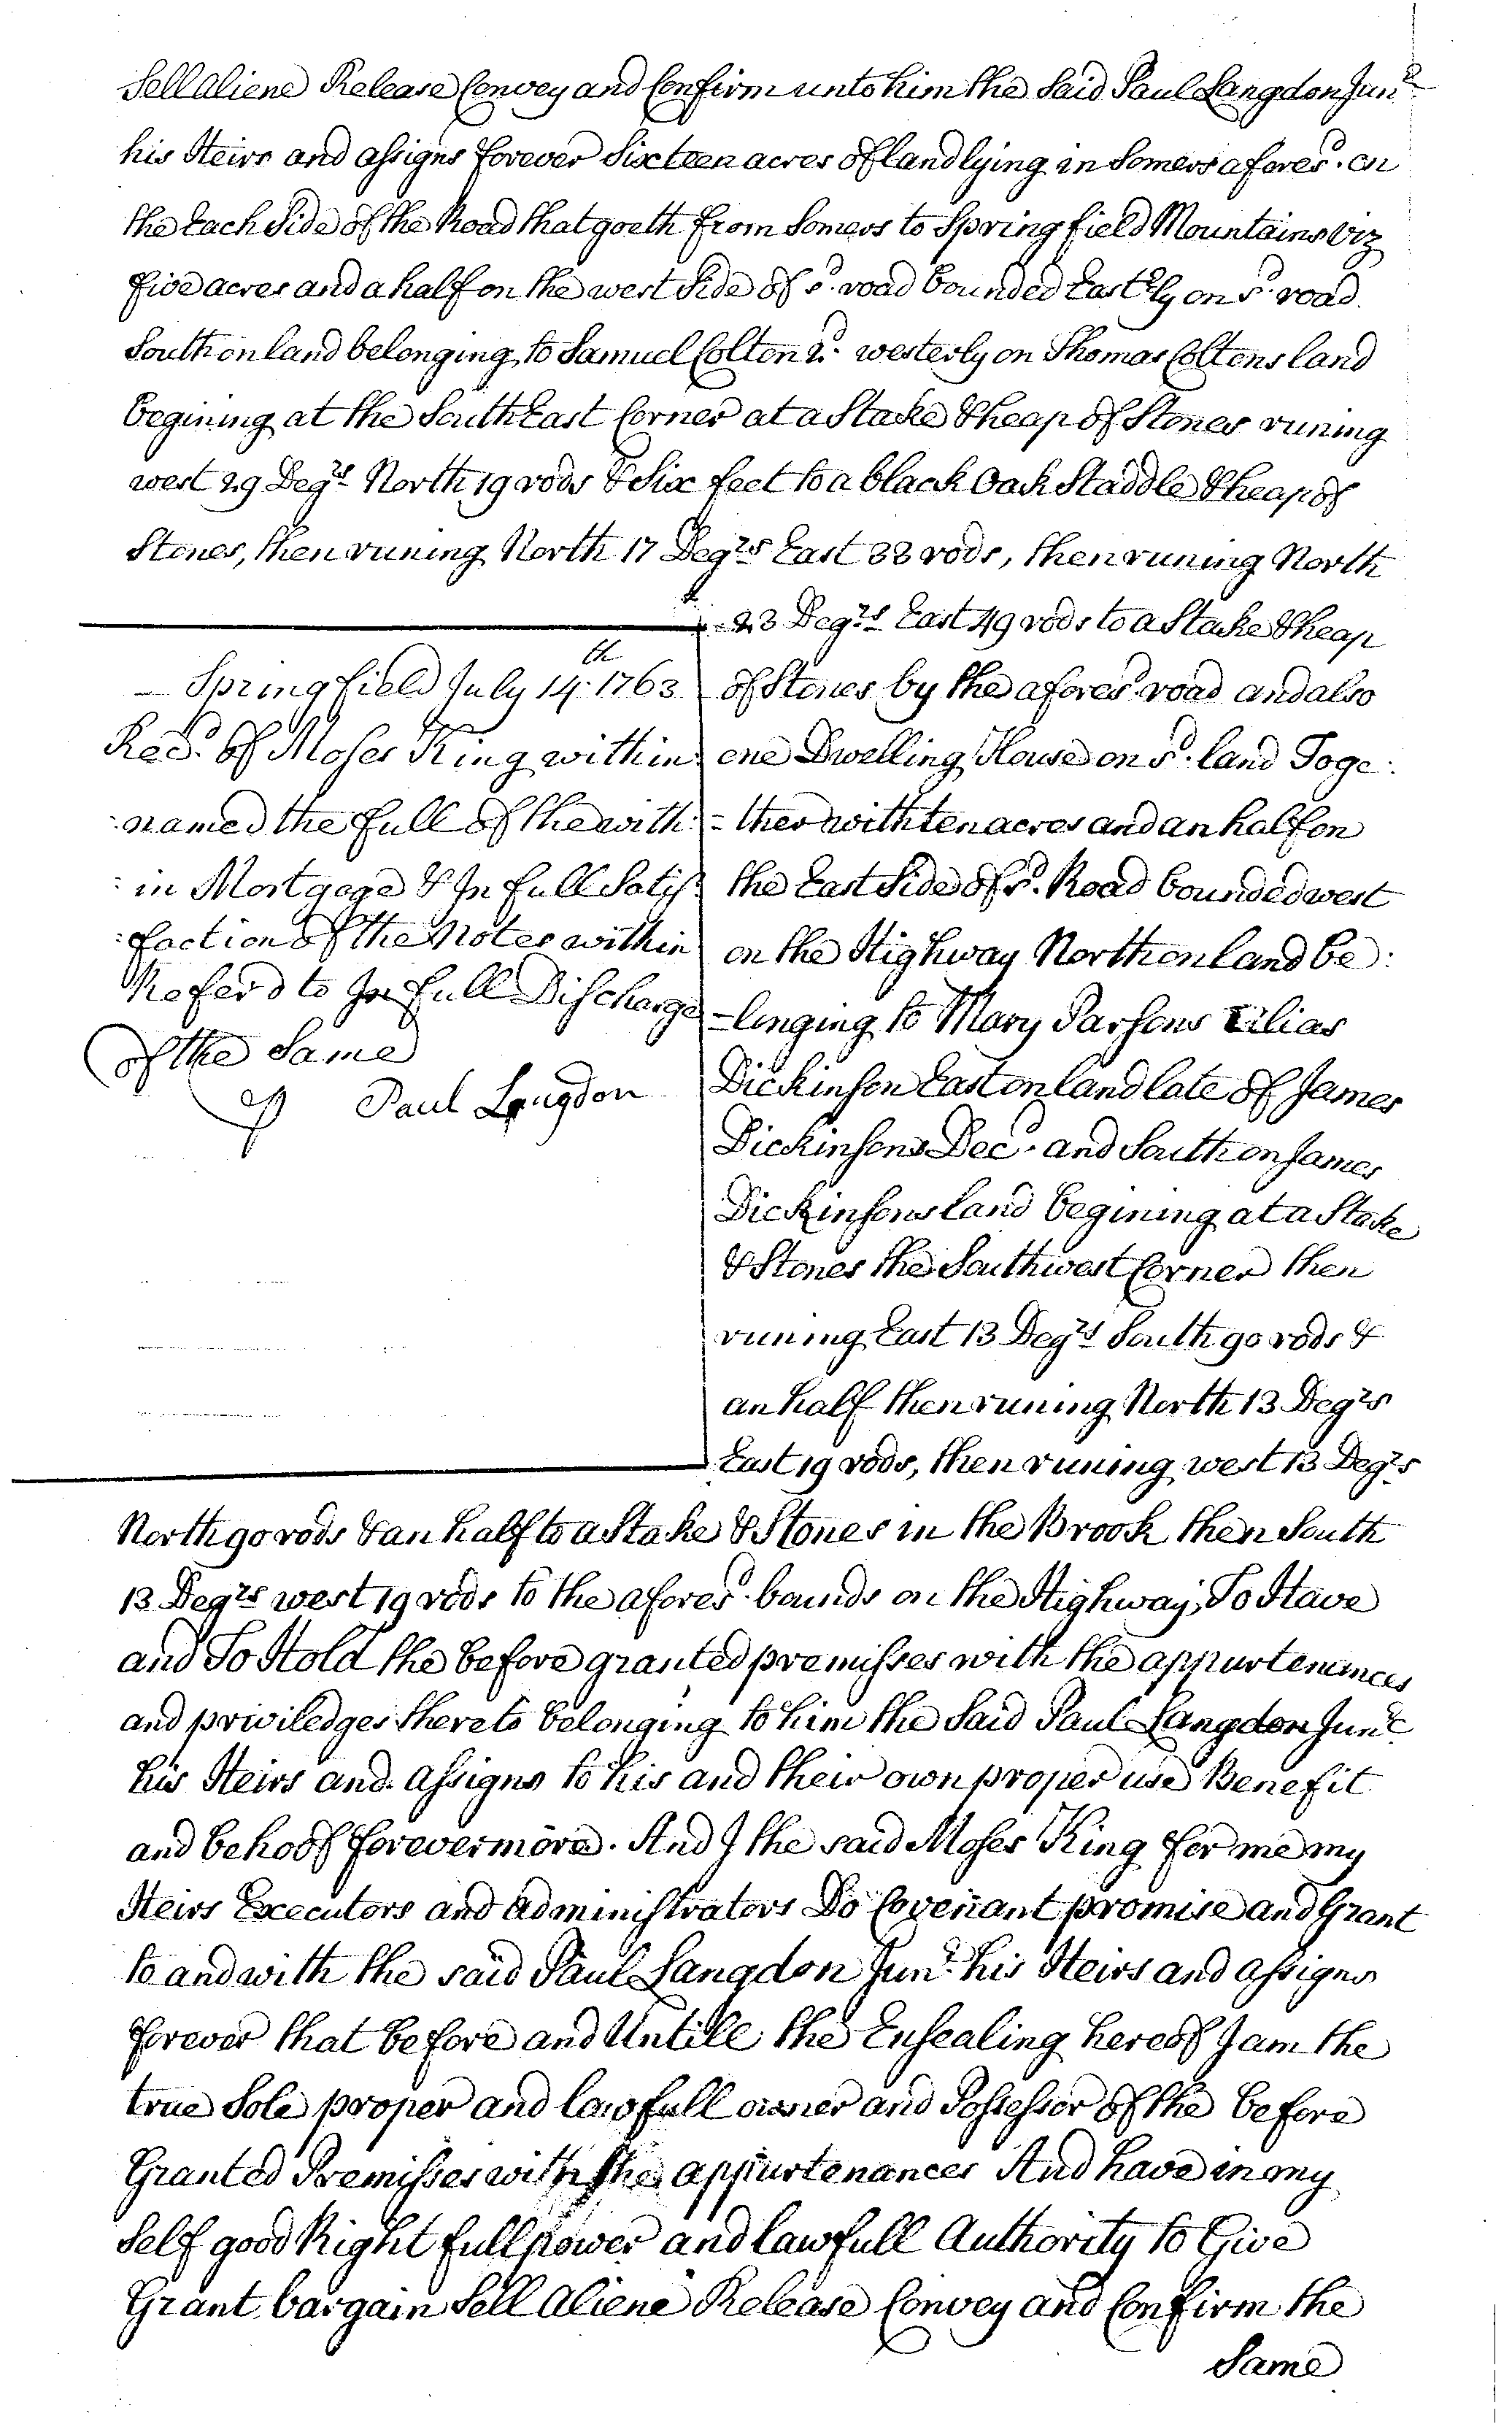 Sell aliene Release Convey and Confirm unto him the Said Paul Langdon Junr
his Heirs and assigns forever Sixteen acres of land lying in Somers afores.d on
the Each Side of the Road that goeth from Somers to Springfield Mountains viz
five acres and a half on the west Side of s.d road bounded Easterly on s.d road
South on land belonging to Samuel Colton 2.d westerly on Thomas Coltons land
begining at the South East Corner at a Stake & heap of Stones runing
west 29 Degrs North 19 rods & Six feet to a black Oak Staddle & heap of
Stones, then runing North 17 Degrs East 33 rods, then runing North
23 Degrs East 49 rods to a Stake & heap
of Stones by the afores.d road and also
one Dwelling House on s.d land Toge:
=ther with ten acres and an half on
the East Side of s.d Road bounded west
on the Highway North on land be:
=longing to Mary Parsons Alias
Dickinson East on land late of James
Dickinsons Dec.d and South on James
Dickinsons land begining at a Stake
& Stones the Southwest Corner then
runing East 13 Degrs South 90 rods &
an half then runing North 13 Degrs
East 19 rods, then runing west 13 Degrs
— Springfield July 14.th 1763
Rec.d of Moses King within
named the full of the with:
:in Mortgage & In full Satis:
:faction of the Notes within
Referd to In full Discharge
of the Same
Paul Langdon
North 90 rods & an half to a Stake & Stones in the Brook then South
13 Degrs west 19 rods to the afores.d bounds on the Highway, To Have
and To Hold the before granted premisses with the appurtenances
and priviledges thereto belonging to him the Said Paul Langdon Junr
his Heirs and assigns to his and their own proper use Benefit
and behoof forevermore. And I the said Moses King for me my
Heirs Executors and administrators Do Covenant promise and Grant
to and with the said Paul Langdon Junr his Heirs and assigns
forever that before and Untill the Ensealing hereof I am the
true Sole proper and lawfull owner and Possessor of the before
Granted Premisses with the appurtenances And have in my
Self good Right full power and lawfull Authority to Give
Grant bargain Sell Aliene Release Convey and Confirm the
Same